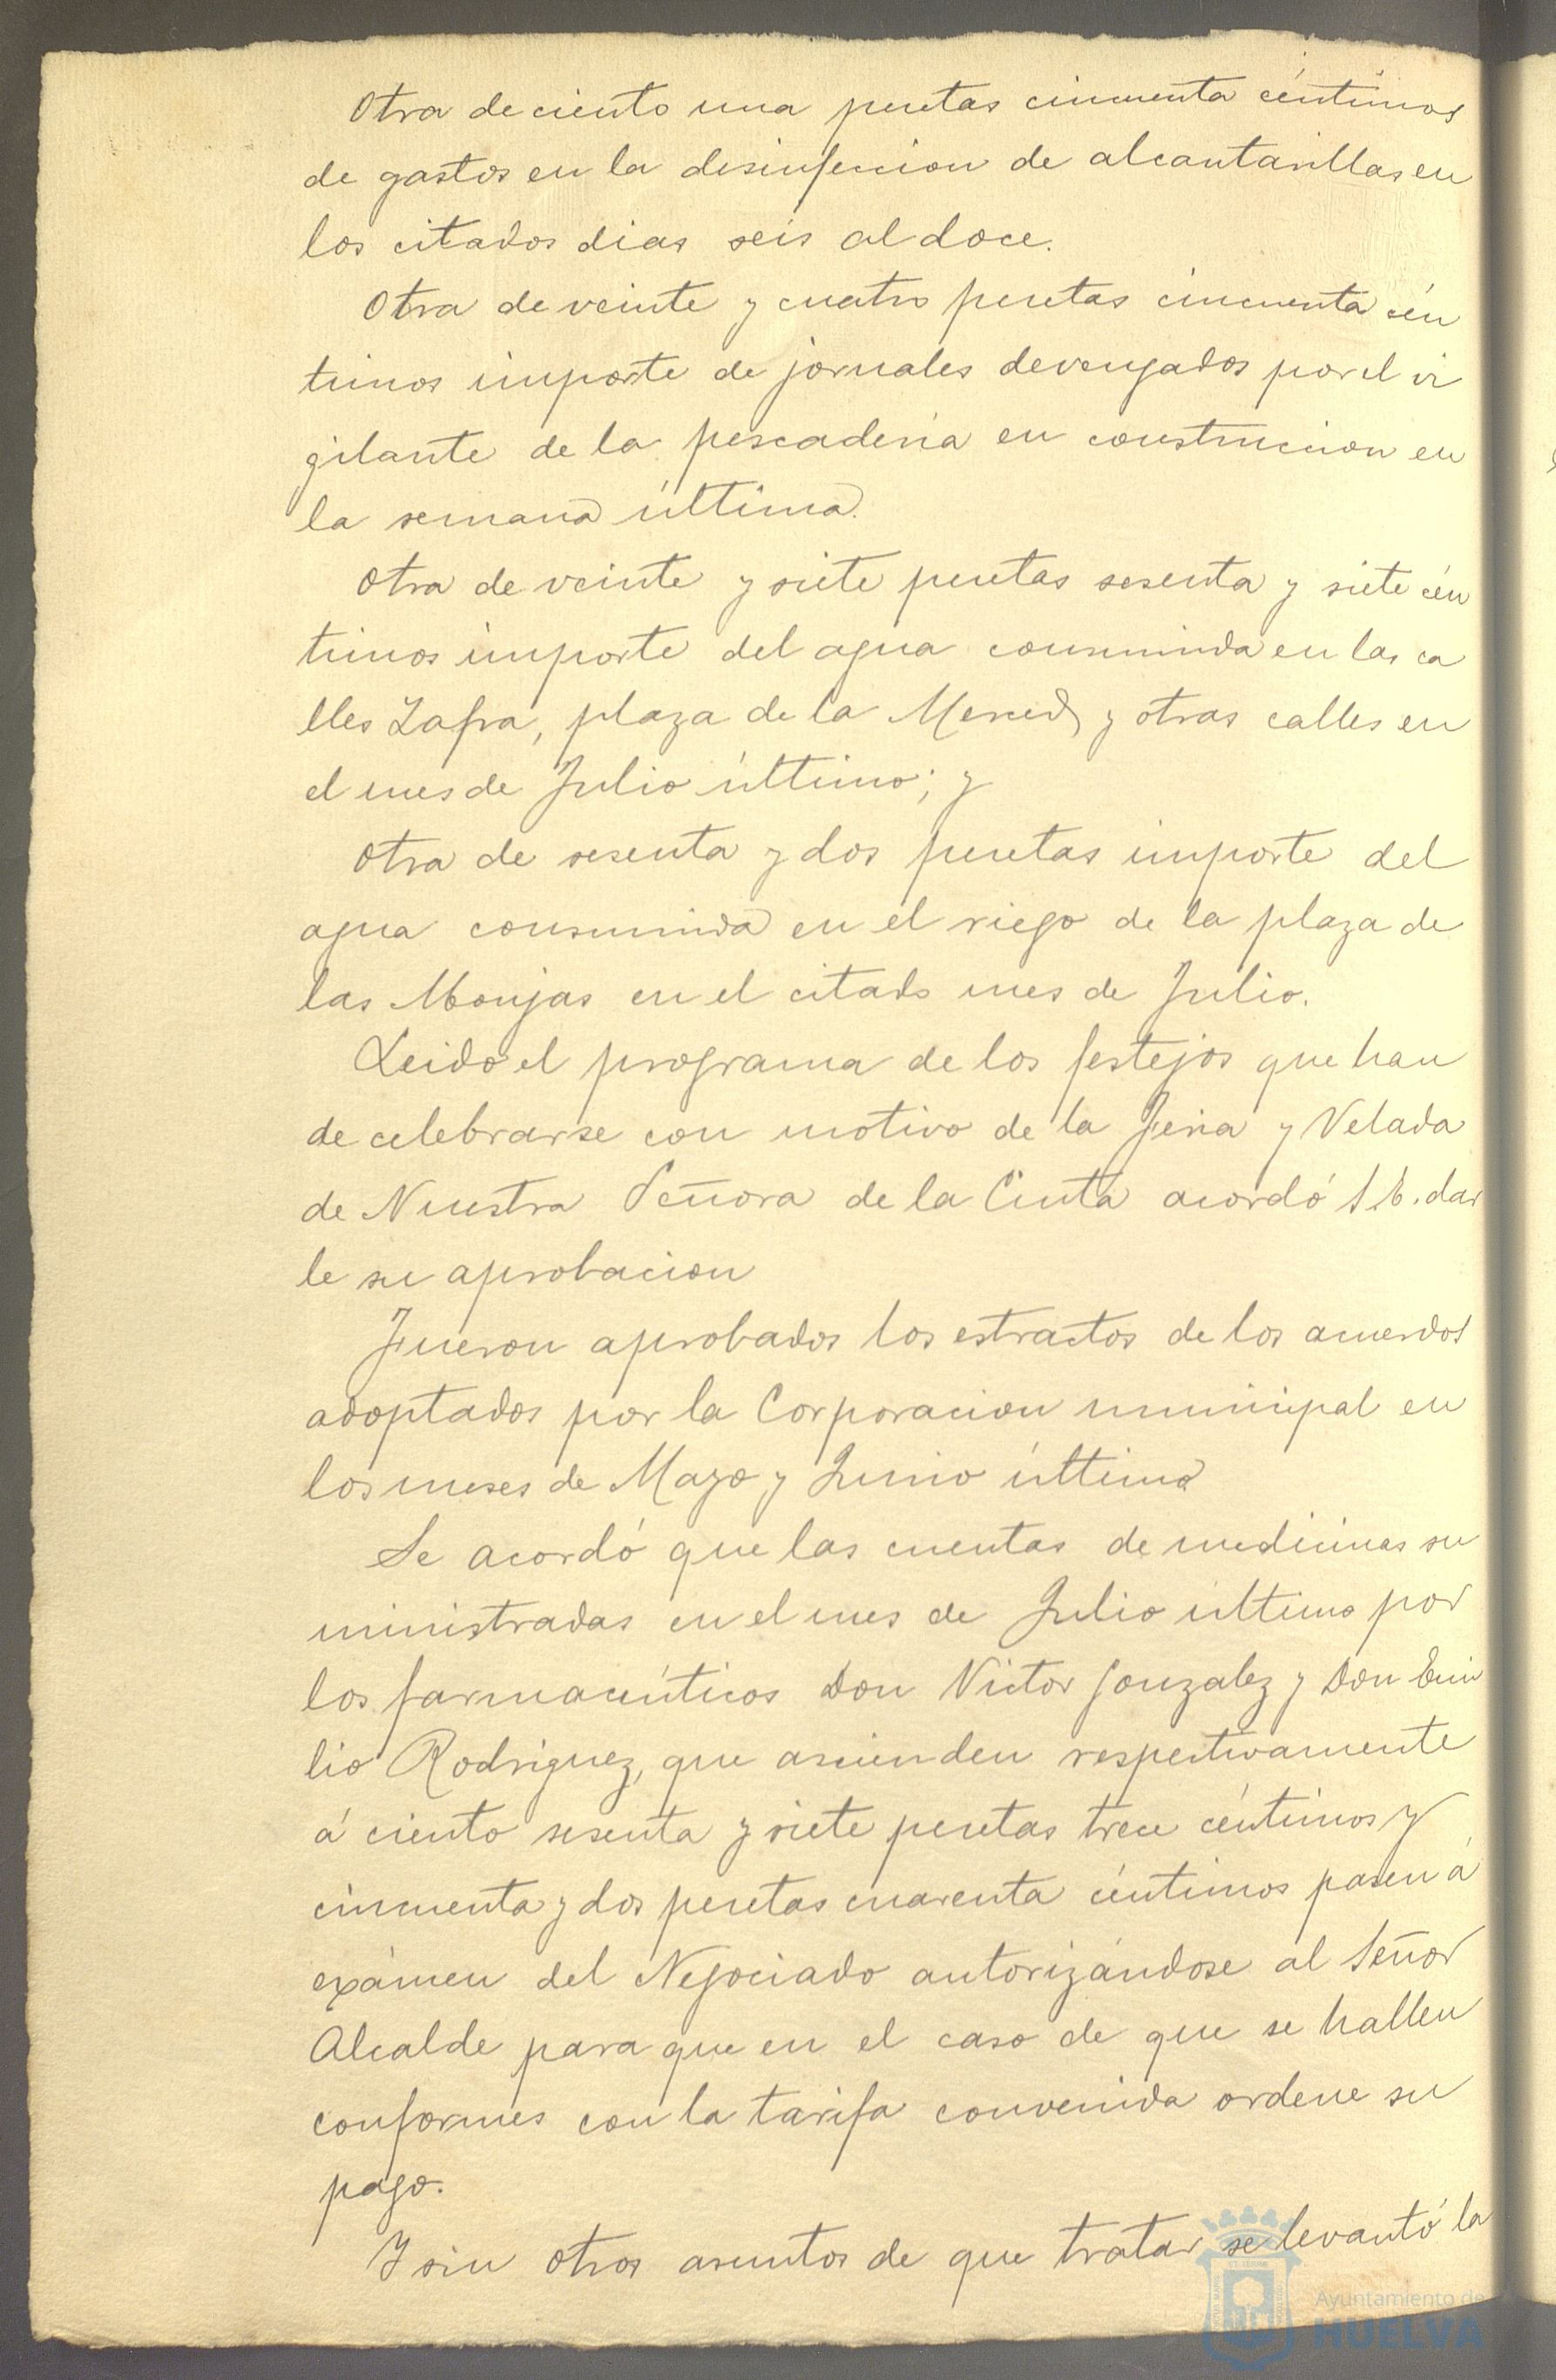 Otra de ciento una pesetas cincuenta céntimos
de gastos en la desinfeccion de alcantarillas en
los citados dias seis al doce.
Otra de veinte y cuatro pesetas cincuenta cén
timos importe de jornales devengados por el vi
gilante de la pescadería en construccion en
la semana última.
Otra de veinte y siete pesetas sesenta y siete cén
timos importe del agua consumida en las ca
lles Zafra, plaza de la Merced y otras calles en
el mes de Julio último; y
Otra de sesenta y dos pesetas importe del
agua consumida en el riego de la plaza de
las Monjas en el citado mes de Julio.
Leido el programa de los festejos que han
de celebrarse con motivo de la Feria y Velada
de Nuestra Señora de la Cinta acordó S.E. dar
le su aprobacion
Fueron aprobados los estractos de los acuerdos
adoptados por la Corporacion municipal en
los meses de Mayo y Junio último
Se acordó que las cuentas de medicinas su
ministradas en el mes de Julio último por
los farmacéuticos Don Victor Gonzalez y Don Emi
lio Rodriguez, que ascienden respectivamente
á ciento sesenta y siete pesetas trece céntimos y
cincuenta y dos pesetas cuarenta céntimos pasen á
exámen del Negociado autorizándose al Señor
Alcalde para que en el caso de que se hallen
conformes con la tarifa convenida ordene su
pago.
Y sin otros asuntos de que tratar se levantó la
Ayuntamiento de
HUELVA